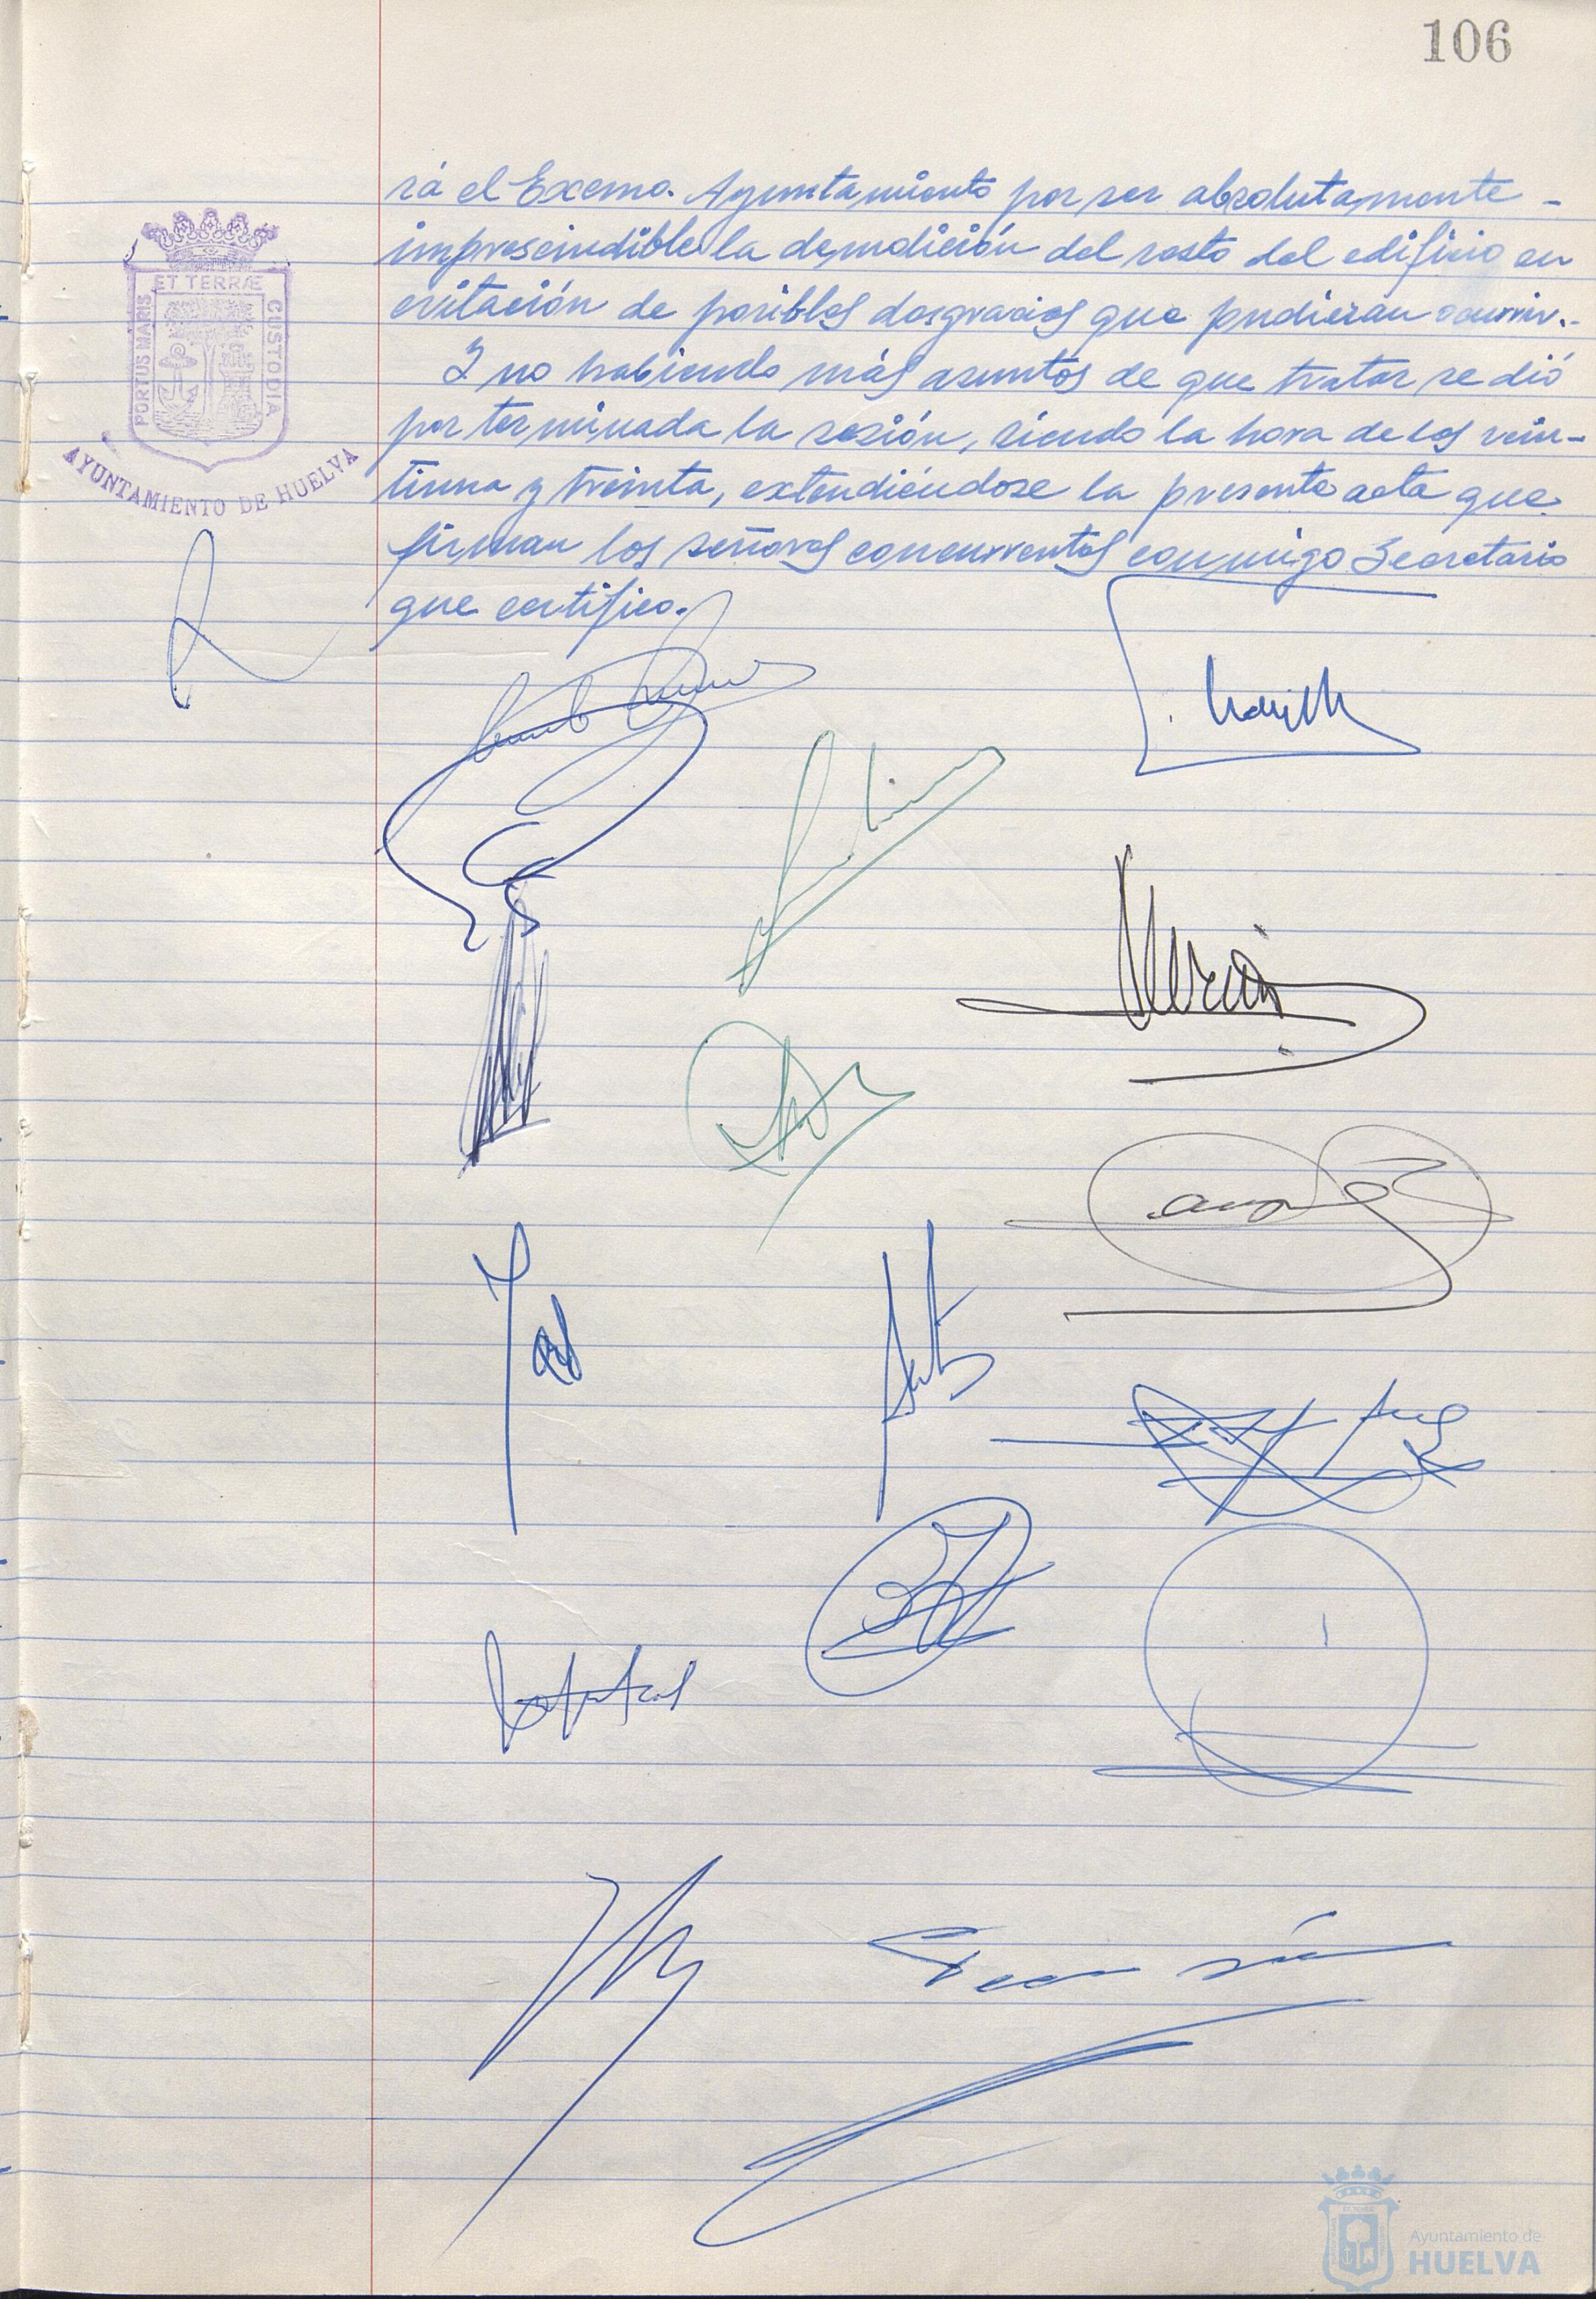 106
rá el Excmo. Ayuntamiento por ser absolutamente -
imprescindible la demolición del resto del edificio en
evitación de posibles desgracias que pudieran ocurrir.-
Y no habiendo más asuntos de que tratar se dió
por terminada la sesión, siendo la hora de las vein-
tiuna y treinta, extendiéndose la presente acta que
firman los señores concurrentes conmigo Secretario
que certifico.
PORTUS MARIS ET TERRÆ CUSTODIA
AYUNTAMIENTO DE HUELVA
Ayuntamiento de
HUELVA